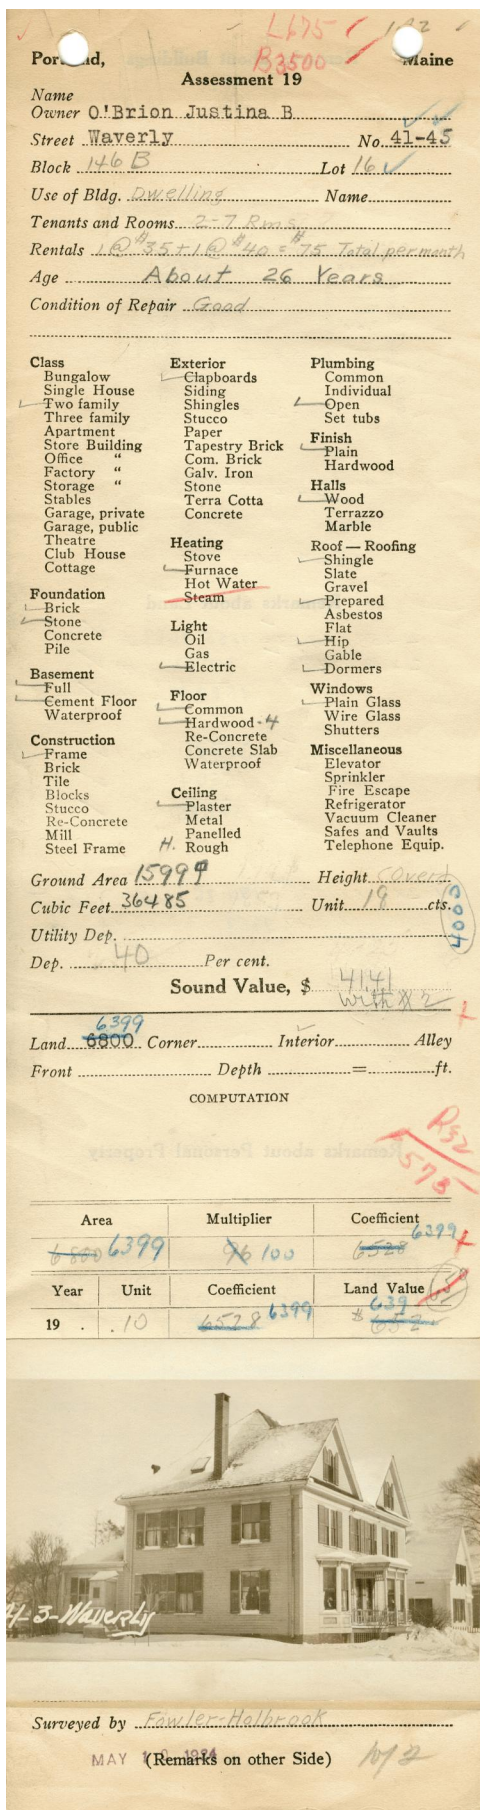 L675
B3500
Portland, Maine
Assessment 19
Name
Owner O'Brion Justina B
Street Waverly No. 41-45
Block 146 B Lot 16
Use of Bldg. Dwelling Name
Tenants and Rooms 2-7 Rms
Rentals 1@$35+1@$40=$75 Total per month
Age About 26 Years
Condition of Repair Good
Class
Bungalow
Single House
Two family
Three family
Apartment
Store Building
Office "
Factory "
Storage "
Stables
Garage, private
Garage, public
Theatre
Club House
Cottage
Foundation
Brick
Stone
Concrete
Pile
Basement
Full
Cement Floor
Waterproof
Construction
Frame
Brick
Tile
Blocks
Stucco
Re-Concrete
Mill
Steel Frame
Exterior
Clapboards
Siding
Shingles
Stucco
Paper
Tapestry Brick
Com. Brick
Galv. Iron
Stone
Terra Cotta
Concrete
Heating
Stove
Furnace
Hot Water
Steam
Light
Oil
Gas
Electric
Floor
Common
Hardwood-4
Re-Concrete
Concrete Slab
Waterproof
Ceiling
Plaster
Metal
Panelled
H. Rough
Plumbing
Common
Individual
Open
Set tubs
Finish
Plain
Hardwood
Halls
Wood
Terrazzo
Marble
Roof — Roofing
Shingle
Slate
Gravel
Prepared
Asbestos
Flat
Hip
Gable
Dormers
Windows
Plain Glass
Wire Glass
Shutters
Miscellaneous
Elevator
Sprinkler
Fire Escape
Refrigerator
Vacuum Cleaner
Safes and Vaults
Telephone Equip.
Ground Area 1599 Height
Cubic Feet 36485 Unit 19 cts.
4000
Utility Dep.
Dep. 40 Per cent.
Sound Value, $ 4141
with #2
6399
Land 6800 Corner Interior Alley
Front Depth = ft.
COMPUTATION
573
Area Multiplier Coefficient
6800 6399 96 100 6528 6399
Year Unit Coefficient Land Value
19 . .10 6528 6399 $ 652 639
41-3-Waverly
Surveyed by Fowler-Holbrook
MAY (Remarks on other Side) 1 of 2